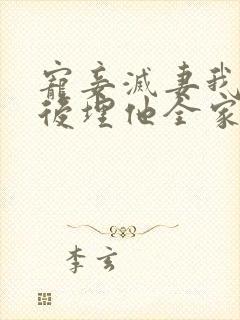 寵妾滅妻我
後埋他全家
李玄